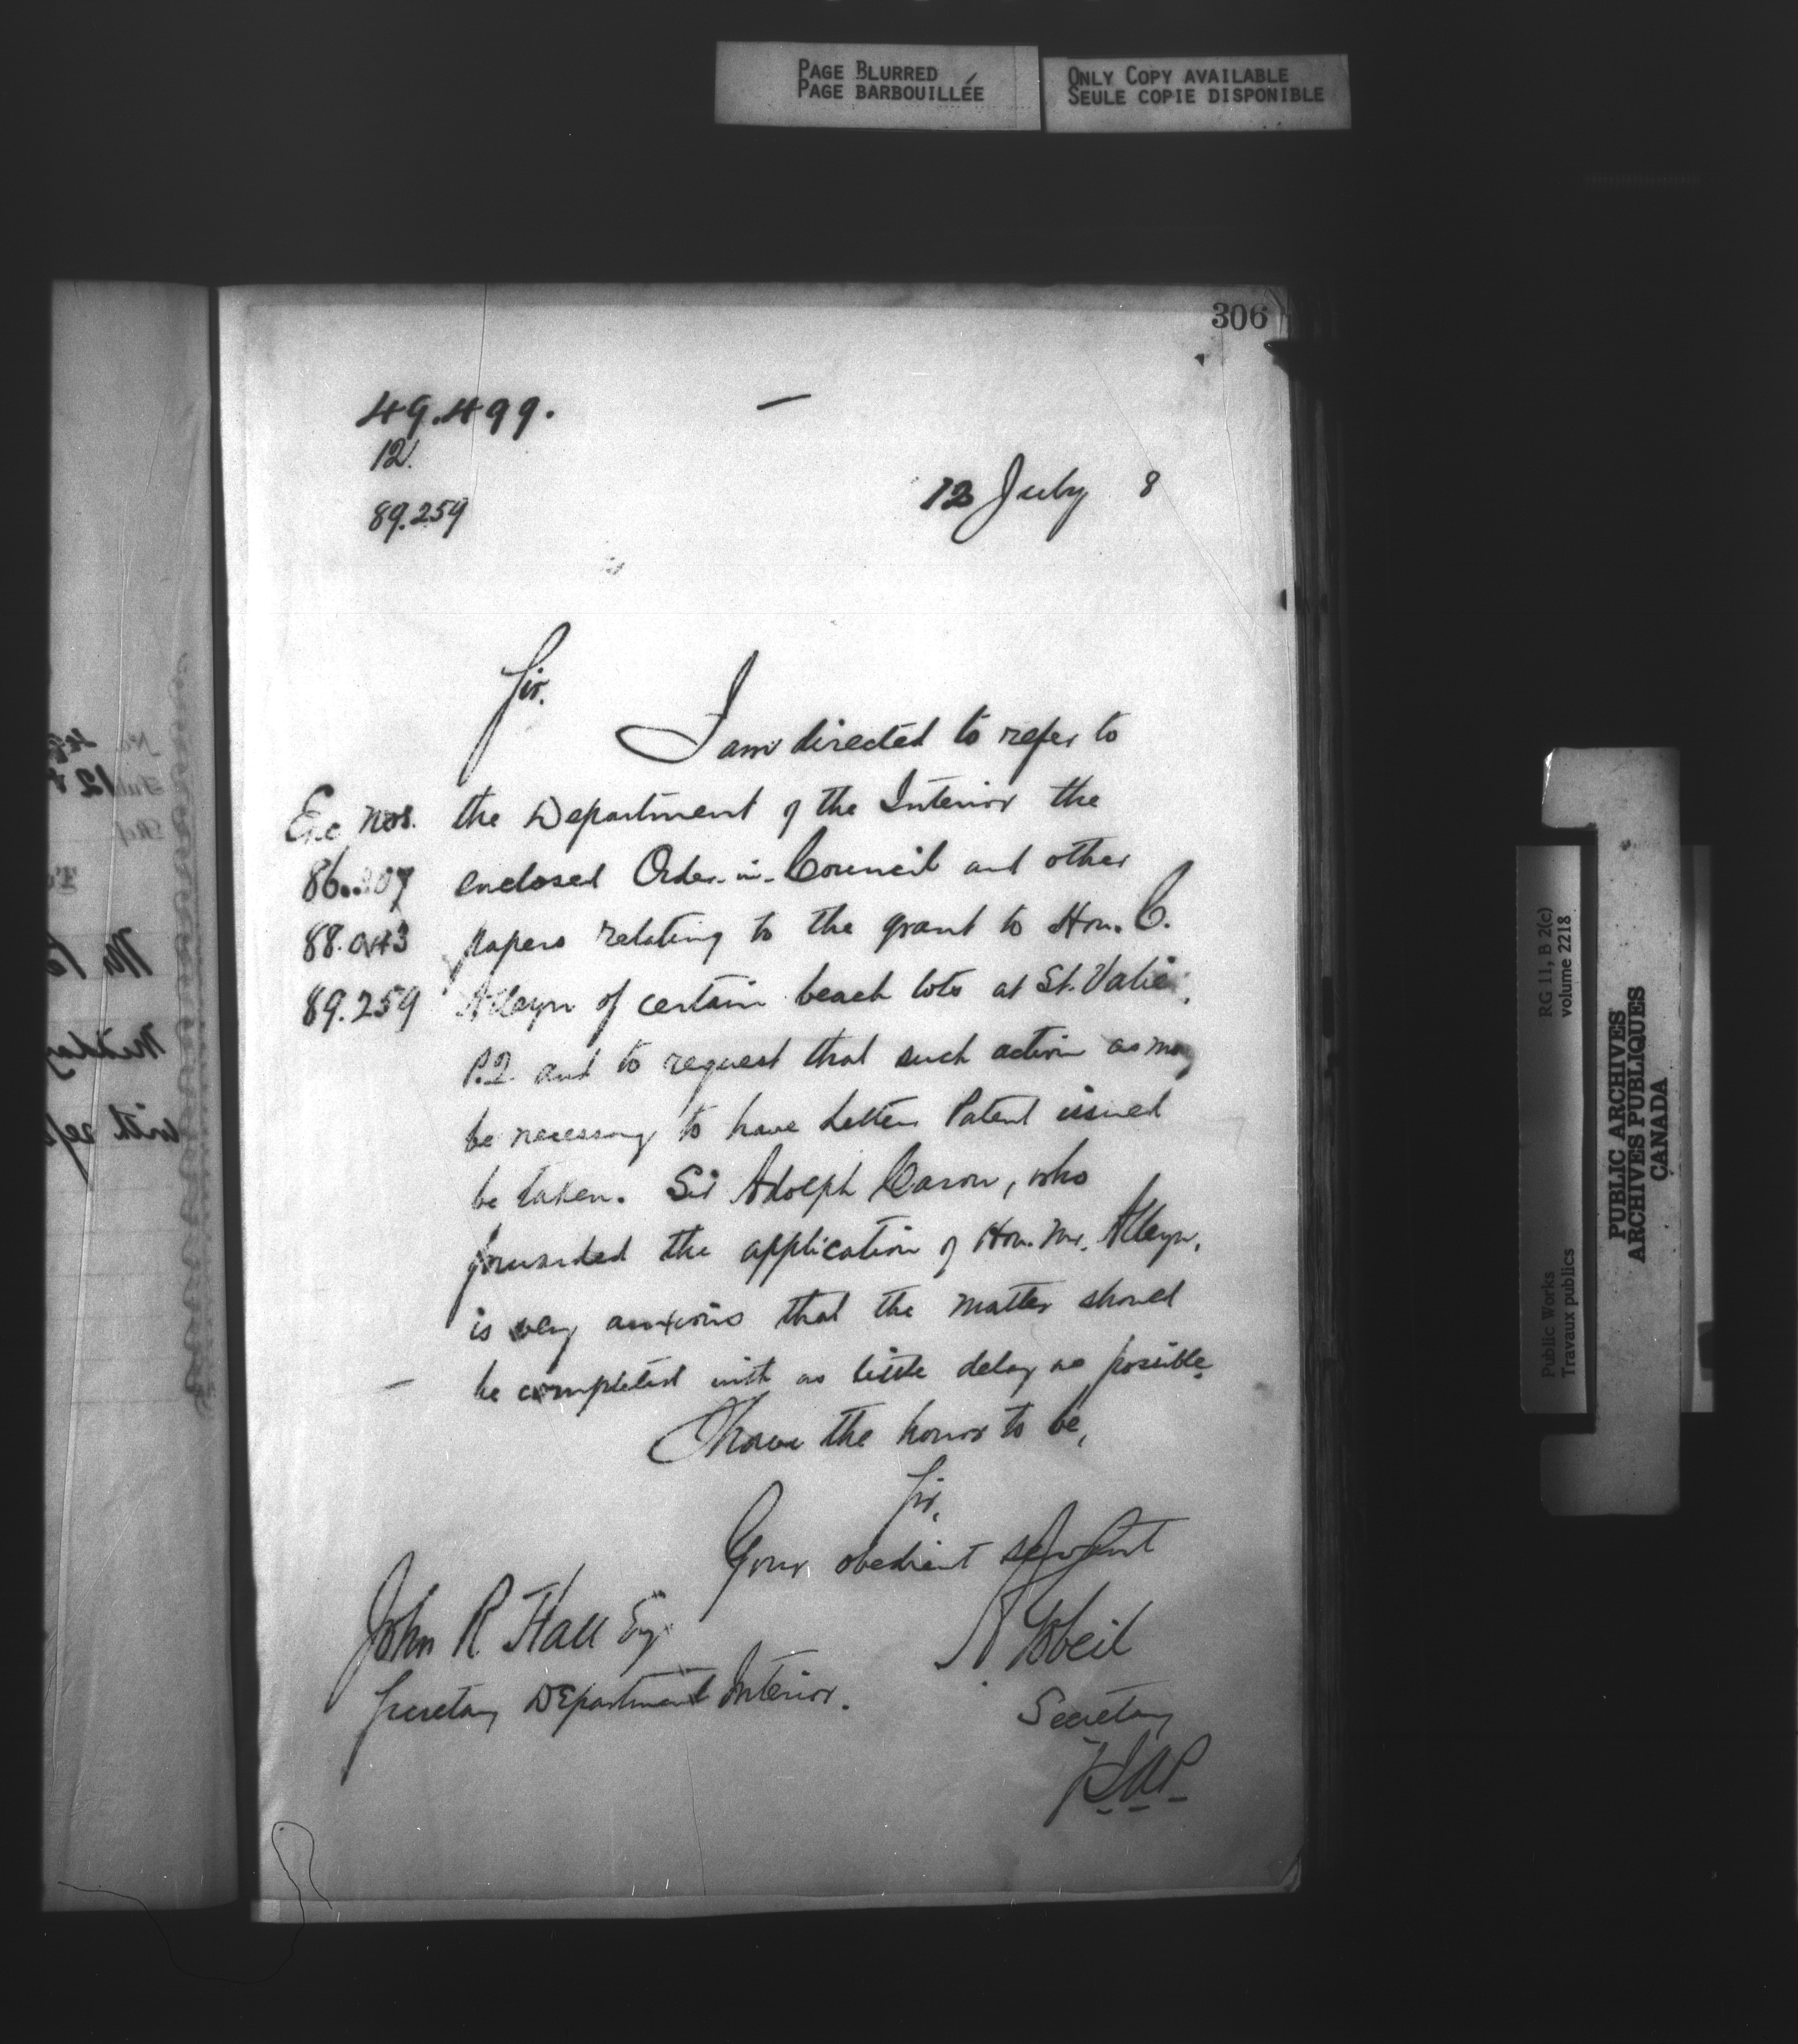 PAGE BLURRED
PAGE BARBOUILLÉE
ONLY COPY AVAILABLE
SEULE COPIE DISPONIBLE
306
49.499.
12.
89.259
12 July 8
Sir.
I am directed to refer to
Enc nos. the Department of the Interior the
86. 07 enclosed Order-in-Council and other
88.043 papers relating to the grant to Hon. C.
89.259 Alleyn of certain beach lots at St. Valier,
P.Q. and to request that such action as may
be necessary to have Letters Patent issued
be taken. Sir Adolph Caron, who
forwarded the application of Hon. Mr. Alleyn,
is very anxious that the matter should
be completed with as little delay as possible.
I have the honor to be,
Sir,
Your obedient servant
A Gobeil
Secretary
John R Hall Esq
Secretary Department Interior.
RG 11, B 2(c)
volume 2218
Public Works
Travaux publics
PUBLIC ARCHIVES
ARCHIVES PUBLIQUES
CANADA